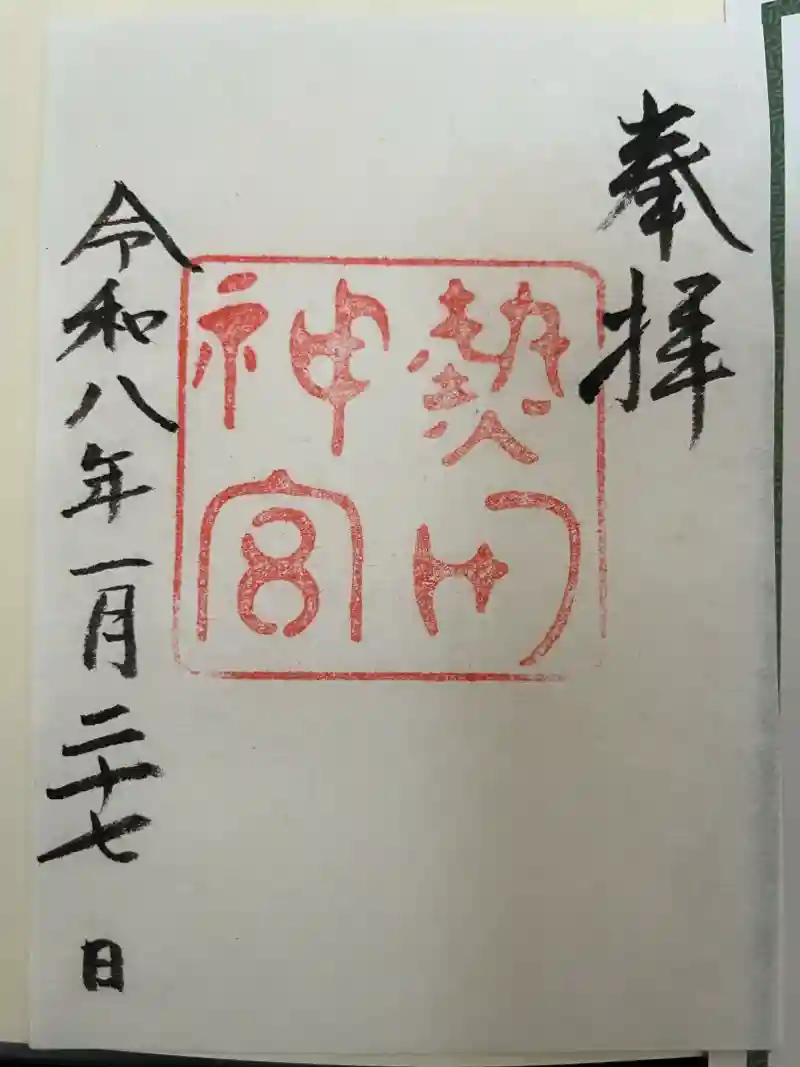 奉拝
熱田
神宮
令和八年一月二十七日